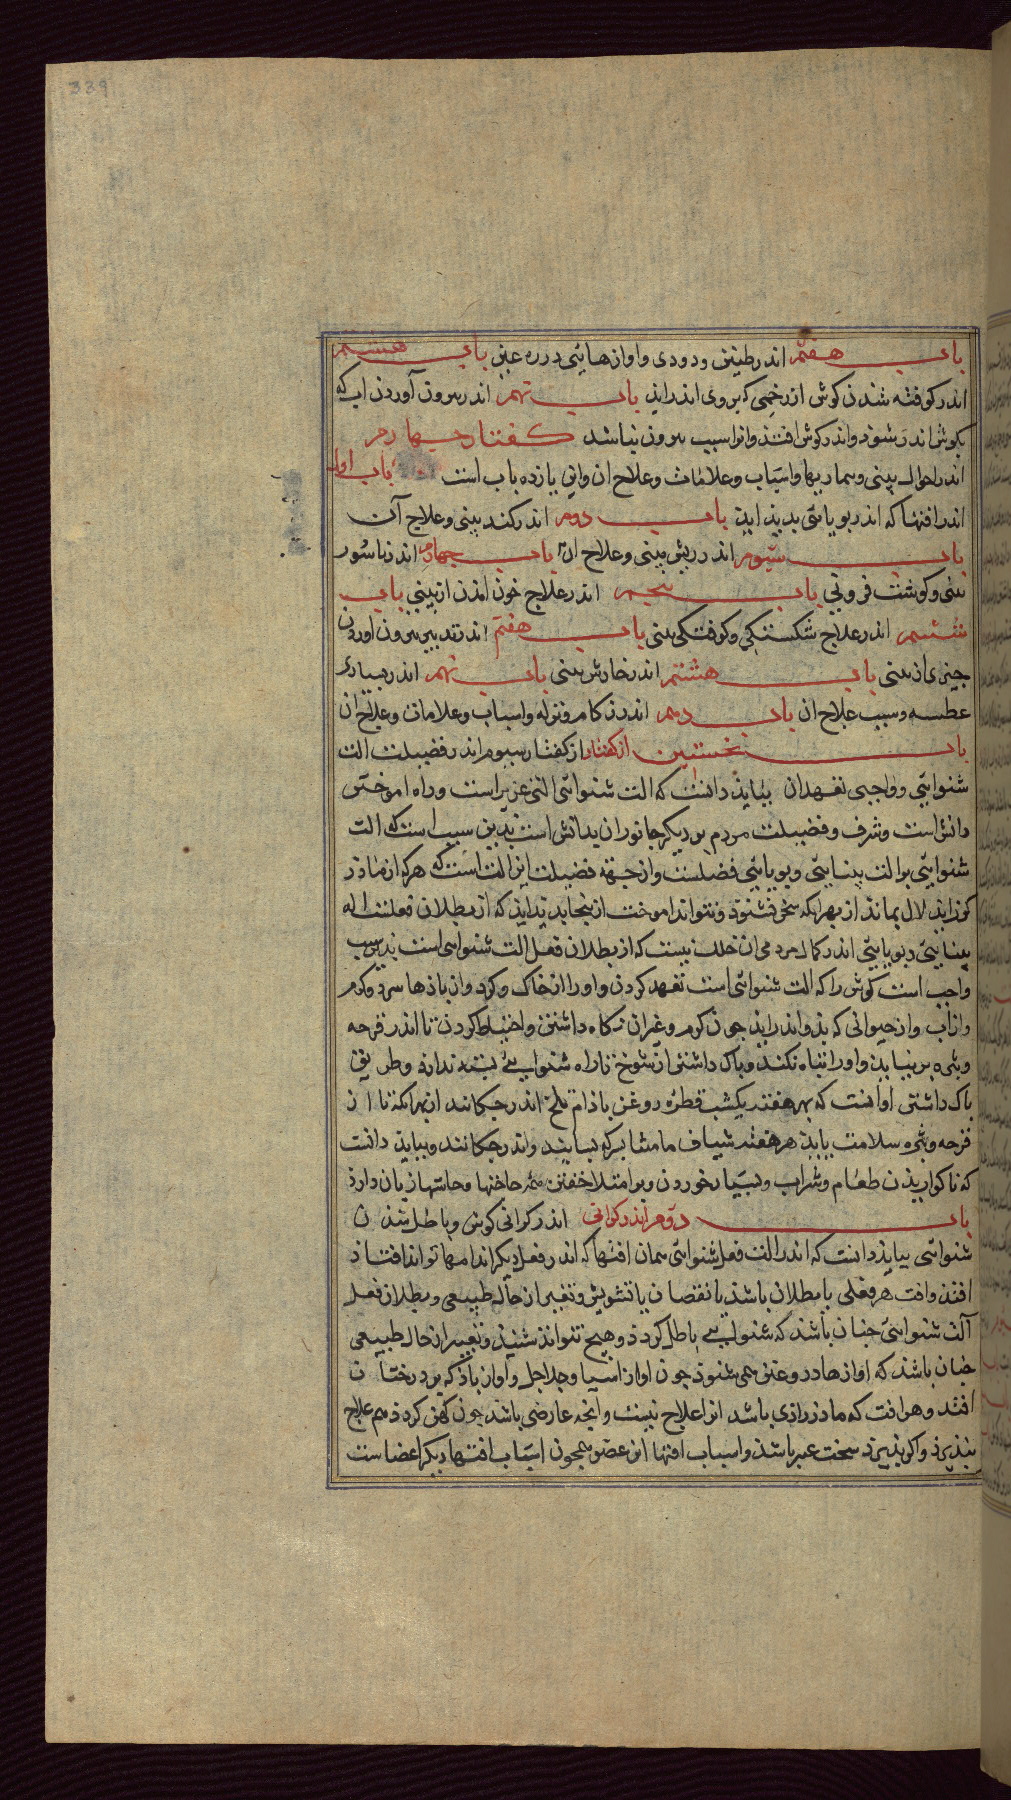 339
باب هفتم اندر طنین و دودی و اوازهایی دروغین باب هشتم
اندر کوفته شدن کوش از زخمی که بروی اندر اید باب نهم اندر بیرون آوردن اب که
بکوش اندر شود و اندر کوش افتد و انرا سبب بیرون نباشد کفتار چهارم
اندر احوال بینی و بیماریها و اسباب و علامات و علاج ان و این یازده باب است باب اول
اندر افتها که اندر بویایی پدید اید باب دوم اندر کند بینی و علاج آن
باب سیوم اندر ریش بینی و علاج ان باب چهارم اندر ناسور
بینی و کوشت فزونی باب پنجم اندر علاج خون امدن از بینی باب
ششم اندر علاج شکستکی و کوفتکی بینی باب هفتم اندر تدبیر بیرون اوردن
چیزی از بینی باب هشتم اندر خارش بینی باب نهم اندر بسیاری
عطسه و سبب علاج ان باب دهم اندر زکام و نزله و اسباب و علامات و علاج ان
باب نخستین از کفتار از کفتار سیوم اندر فضیلت الت
شنوایی و واجبی تعهد ان بباید دانست که الت شنوایی التی عزیز است و راه اموختن
دانش است و شرف و فضیلت مردم بر دیکر جانوران بدانش است بدین سبب است که الت
شنوایی بر الت بینایی و بویایی فضلست و از جهة فضیلت این الت است که هر که از مادر
کر زاید لال بماند از بهر انکه سخن نشنود و نتواند اموخت از ینجا پدید اید که از بطلان فعل الت
بینایی و بویایی اندر کمال مردمی ان خلل نیست که از بطلان فعل الت شنوایی است بدین سبب
واجب است کوش را که الت شنوایی است تعهد کردن و اورا از خاک و کرد و از بادها سرد و کرم
و از اب و از حیوانی که بدو اندر اید چون کرم و غیر ان نکاه داشتن و احتیاط کردن تا اندر قرحه
و بثره بر نیاید و اورا تباه نکند و پاک داشتن از شوخ تا راه شنوایی بسته ندارد و طریق
پاک داشتن او انست که بهر هفته یکشب قطره روغن بادام تلخ اندر چکانند از بهر انکه تا از
قرحه و بثره سلامت یابد هر هفته شیاف مامیثا بسرکه بسایند و اندر چکانند و بباید دانست
که ناکواریدن طعام و شراب و بسیار خوردن و بر امتلا خفتن همه حاختها و حاستها زیان دارد
باب دوم اندر کرانی اندر کرانی کوش و باطل شدن
شنوایی بباید دانست که اندر الت فعل شنوایی همان افتها که اندر فعل دیکر اندامها تواند افتاد
افتد و افت هر فعلی یا بطلان باشد یا نقصان یا تشویش و تغیر از حال طبیعی و بطلان فعل
آلت شنوایی چنان باشد که شنوایی باطل کردد و هیچ نتواند شنید و تغییر از حال طبیعی
چنان باشد که اوازها دروغین همی شنود چون اواز اسیا و جلاجل و آواز باد که بر درختان
افتد و هر افت که مادرزادی باشد انرا علاج نیست و انچه عارضی باشد چون کهن کردد هم علاج
نپذیرد و اکر پذیرد سخت عسر باشد و اسباب افتها این عضو همچون اسباب افتها دیکر اعضاست